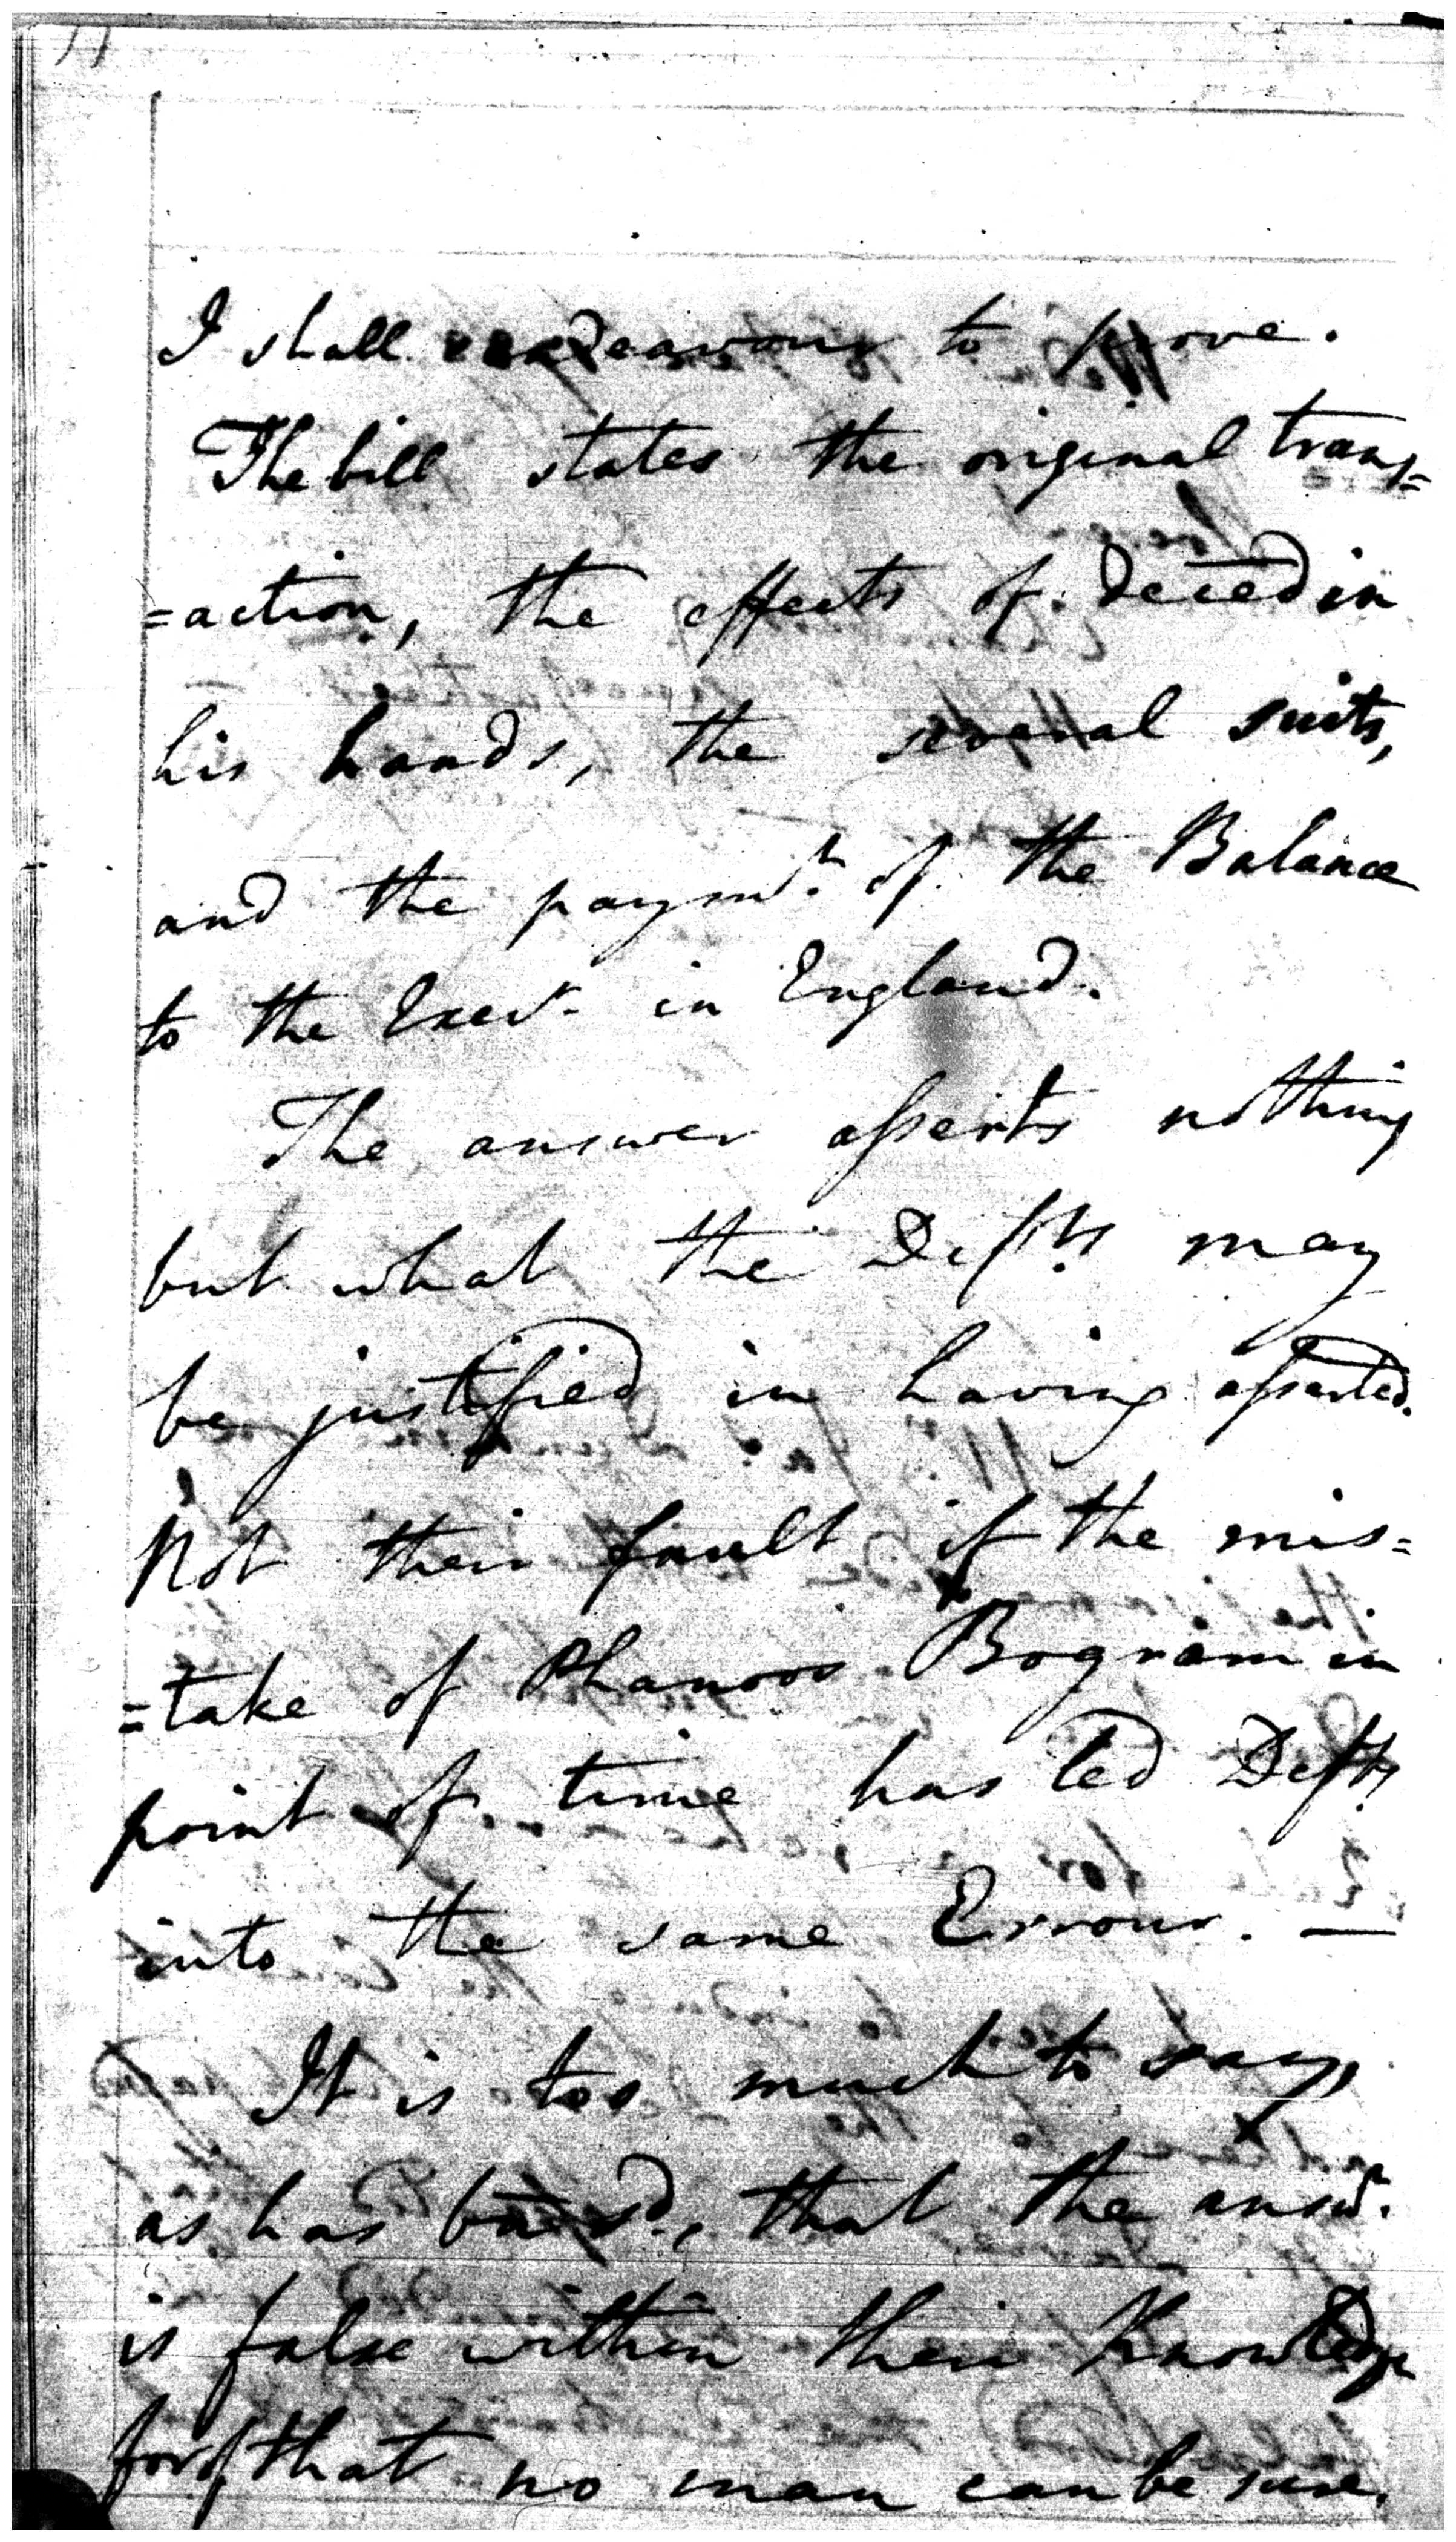 I shall endeavour to prove.
The bill states the original trans=
=action, the effects of deced in
his hands, the several suits,
and the paymt. of the Balance
to the Execr. in England.
The answer asserts nothing
but what the Defts may
be justified in having asserted.
Not their fault if the mis=
=take of Phanoos Bogram in
point of time has led Defts
into the same Errour. —
It is too much to say,
as has been sd., that the answr.
is false within their knowledge
for of that no man can be sure.